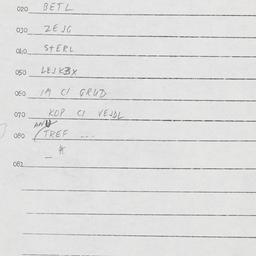 020 BETL
030 ZEJG
040 STERL
050 LEJKBX
060 19 CI GRUD
070 KOP CI VEJDL
080 TREF ...
_ *
081